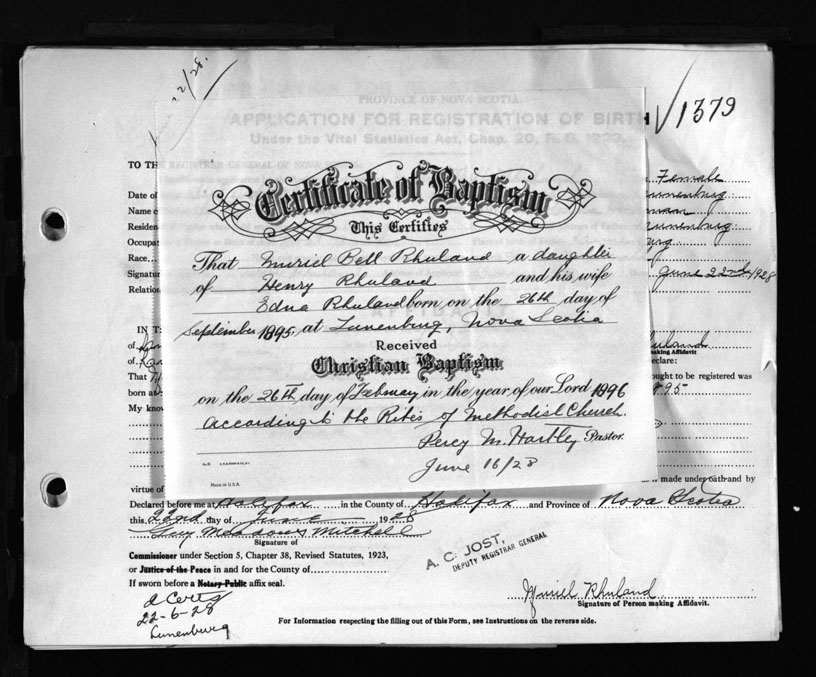 2/28.
PROVINCE OF NOVA SCOTIA.
APPLICATION FOR REGISTRATION OF BIRTH
Under the Vital Statistics Act, Chap. 20, R. S. 1923.
√1379
TO TH
Female
Certificate of Baptism
Date of
Lunenburg
Name
This Certifies
Residen
Lunenburg
Occupat
That Muriel Bell Rhuland a daughter
Race
of Henry Rhuland and his wife
Signatur
June 22nd 1928
Relation
Edna Rhuland born on the 26th day of
September 1895 at Lunenburg, Nova Scotia
IN T
Received
of
huland
making Affidavit
Christian Baptism
of
eclare:
That
ought to be registered was
born at
on the 26th day of February in the year of our Lord 1896
895
My know
According to the Rites of Methodist Church.
Percy M. Hartley Pastor.
MADE IN U.S.A.
June 16/28
virtue of
made under oath and by
Declared before me at Halifax in the County of Halifax and Province of Nova Scotia
this 22nd day of June 1928
Guy Mitchell
Signature of
Commissioner under Section 5, Chapter 38, Revised Statutes, 1923,
or Justice of the Peace in and for the County of
If sworn before a Notary Public affix seal.
A. C. JOST,
DEPUTY REGISTRAR GENERAL
Muriel Rhuland
Signature of Person making Affidavit.
22-6-28
Lunenburg
For Information respecting the filling out of this Form, see Instructions on the reverse side.